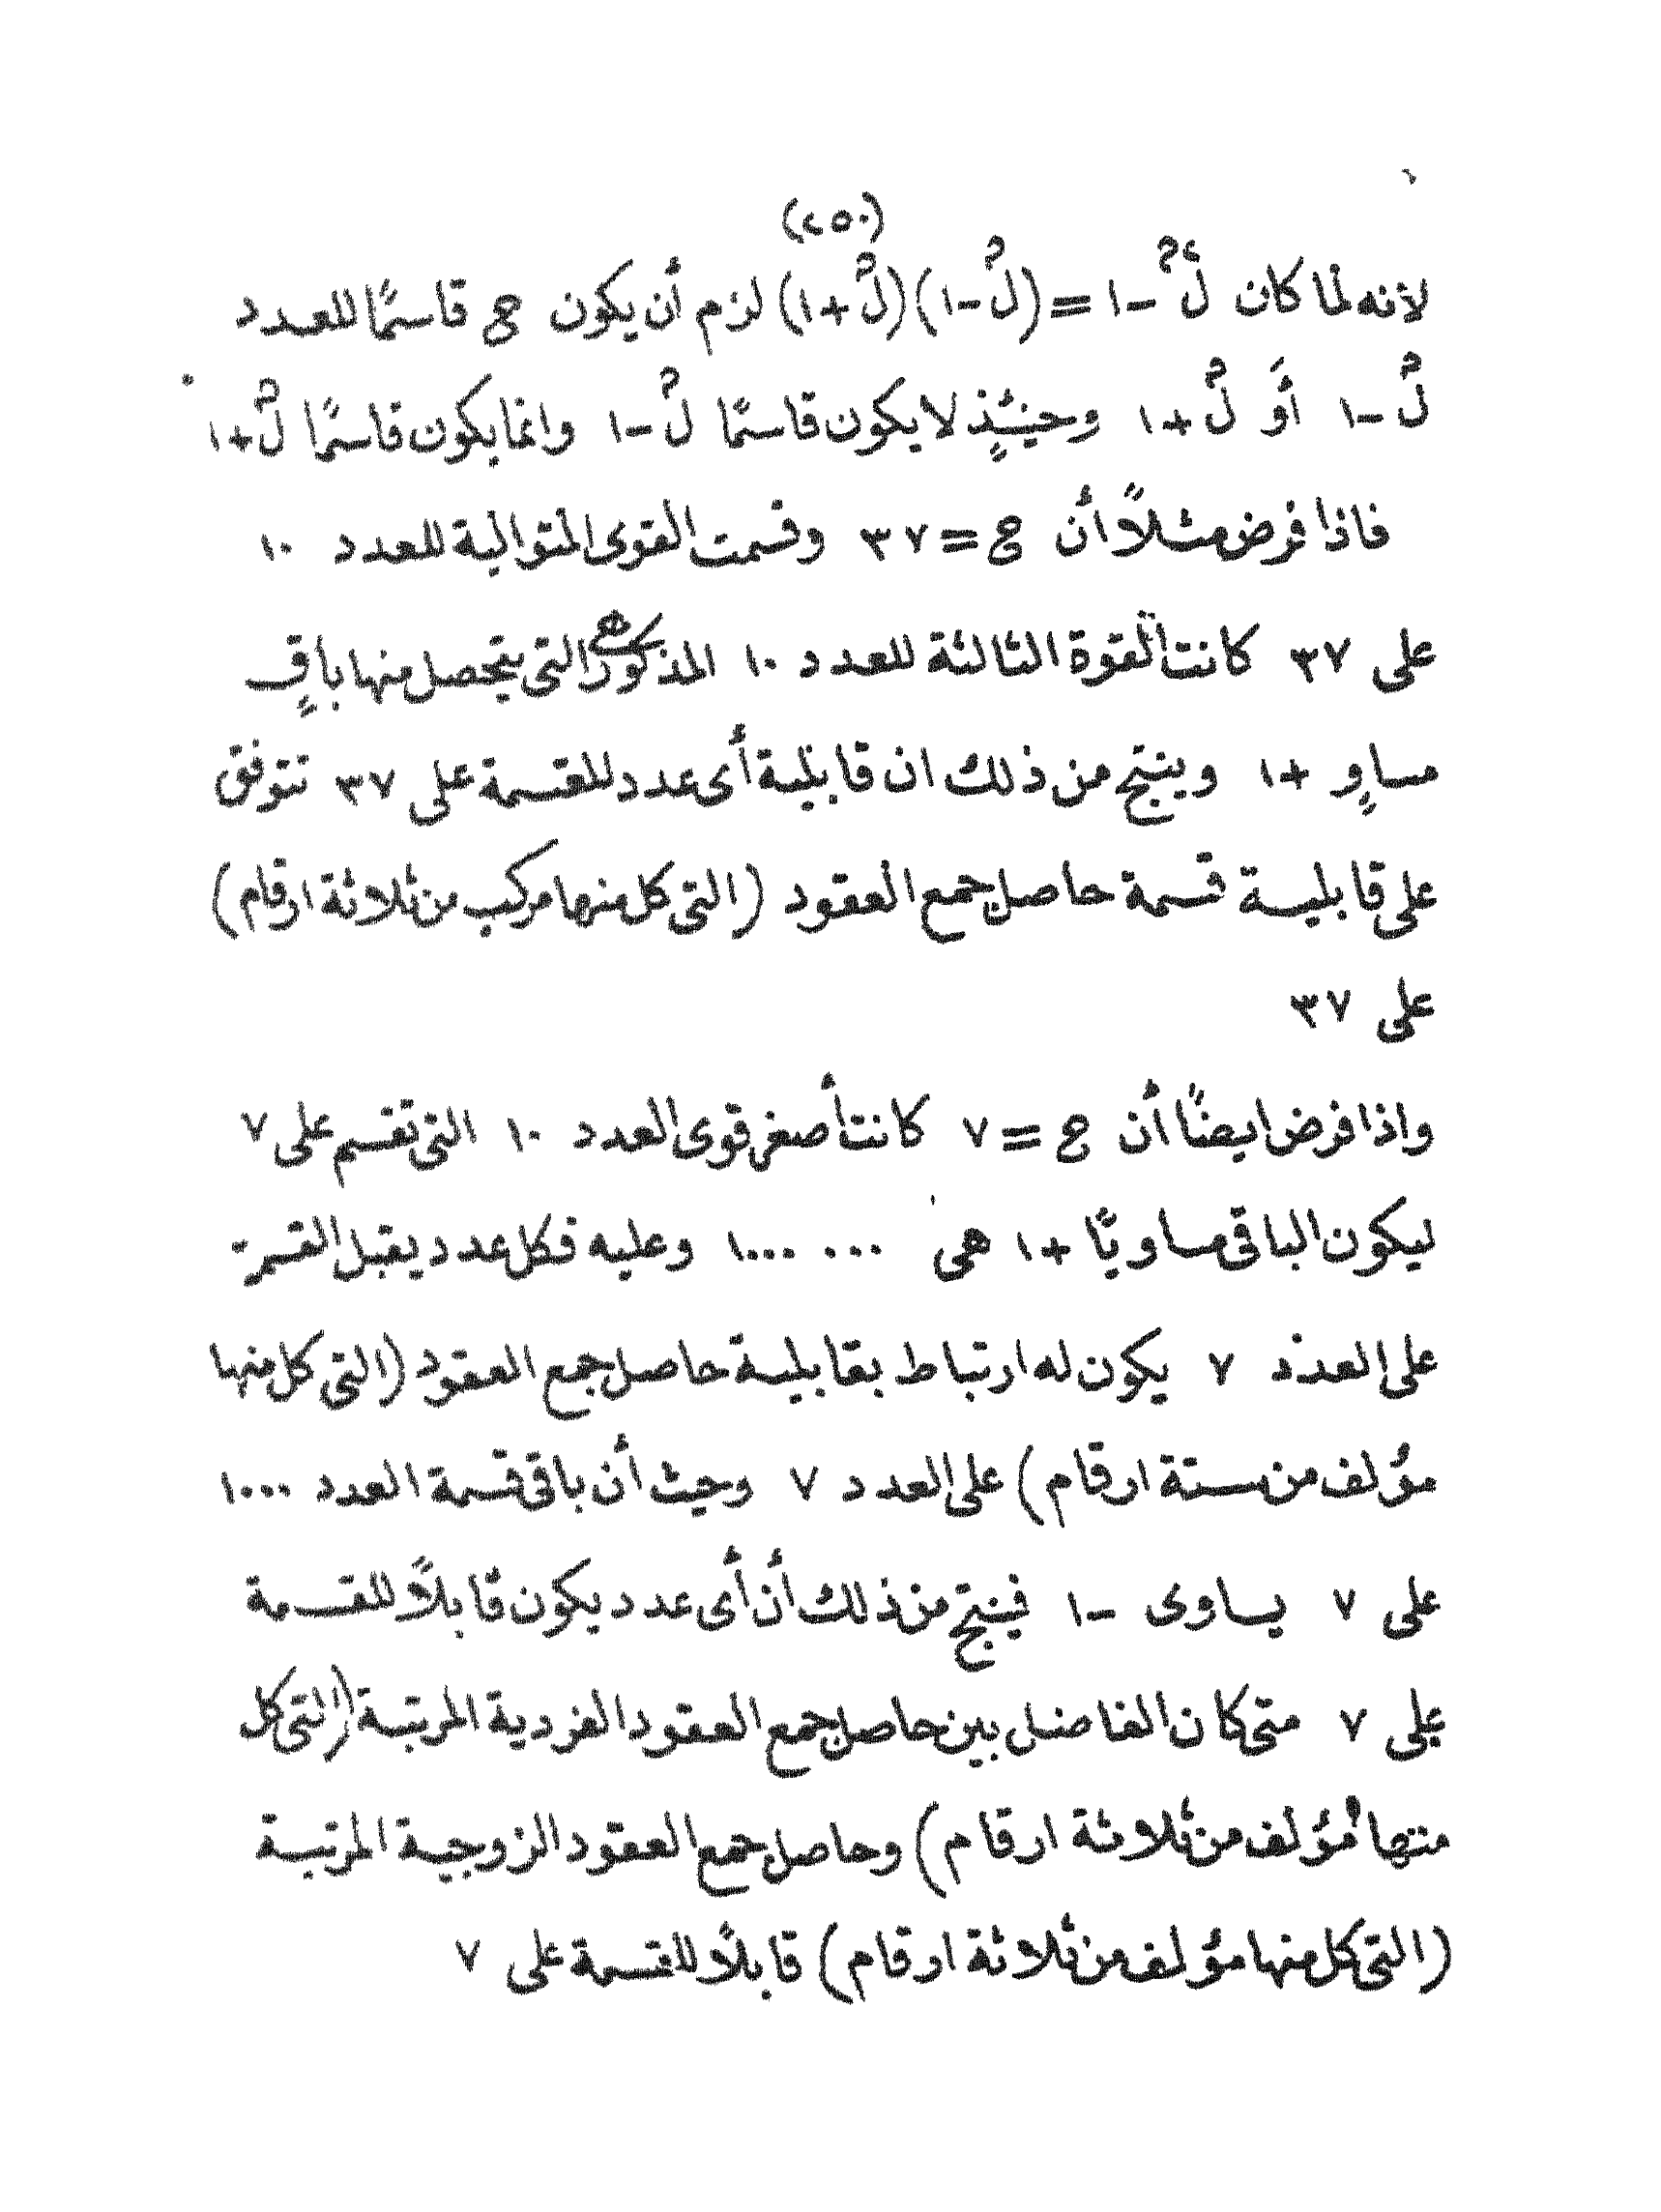 (٢٥٠)
لأنه لما كان ل٢م -١ = (لم -١)(لم +١) لزم أن يكون ح قاسمًا للعدد
لم -١ أَو لم +١ وحينئذٍ لا يكون قاسمًا لم -١ وانما يكون قاسمًا لم +١
فاذا فرض مثلاً أن ح = ٣٧ وقسمت القوى المتوالية للعدد ١٠
على ٣٧ كانت القوة الثالثة للعدد ١٠ المذكورة التى يتحصل منها باقٍ
مساوٍ +١ وينتج من ذلك ان قابلية أى عدد للقسمة على ٣٧ تتوقف
على قابلية قسمة حاصل جمع العقود (التى كل منها مركب من ثلاثة ارقام)
على ٣٧
واذا فرض ايضًا أن ح = ٧ كانت أصغر قوى العدد ١٠ التى تقسم على ٧
ليكون الباقى مساويًا +١ هى ١٠٠٠ ٠٠٠ وعليه فكل عدد يقبل القسمة
على العدد ٧ يكون له ارتباط بقابلية حاصل جمع العقود (التى كل منها
مؤلف من ستة ارقام) على العدد ٧ وحيث أن باقى قسمة العدد ١٠٠٠
على ٧ يساوى -١ فينتج من ذلك أن أى عدد يكون قابلاً للقسمة
على ٧ متى كان الفاضل بين حاصل جمع العقود الفردية المرتبة (التى كل
منها مؤلف من ثلاثة ارقام) وحاصل جمع العقود الزوجية المرتبة
(التى كل منها مؤلف من ثلاثة ارقام) قابلاً للقسمة على ٧